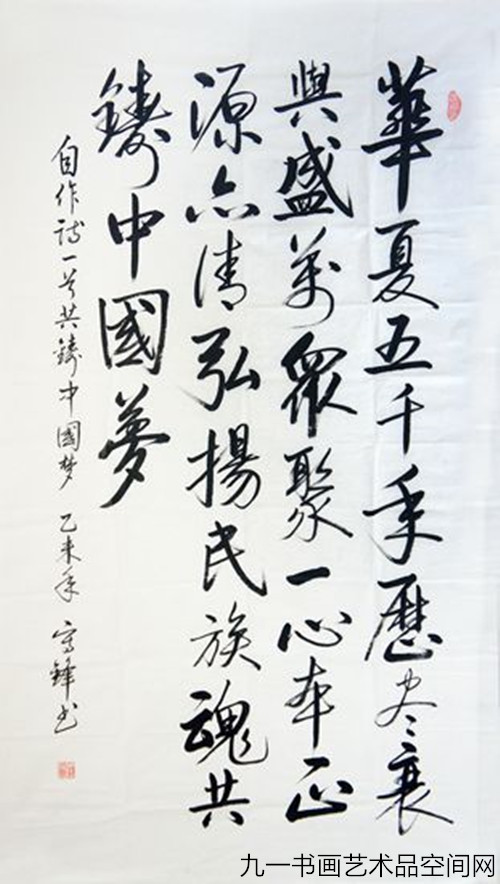 華夏五千年歷尽衰
與盛萬眾聚一心本正
源亦清弘揚民族魂共
鑄中國夢
自作诗一首共鑄中國梦 乙未年 鋒书
九一书画艺术品空间网